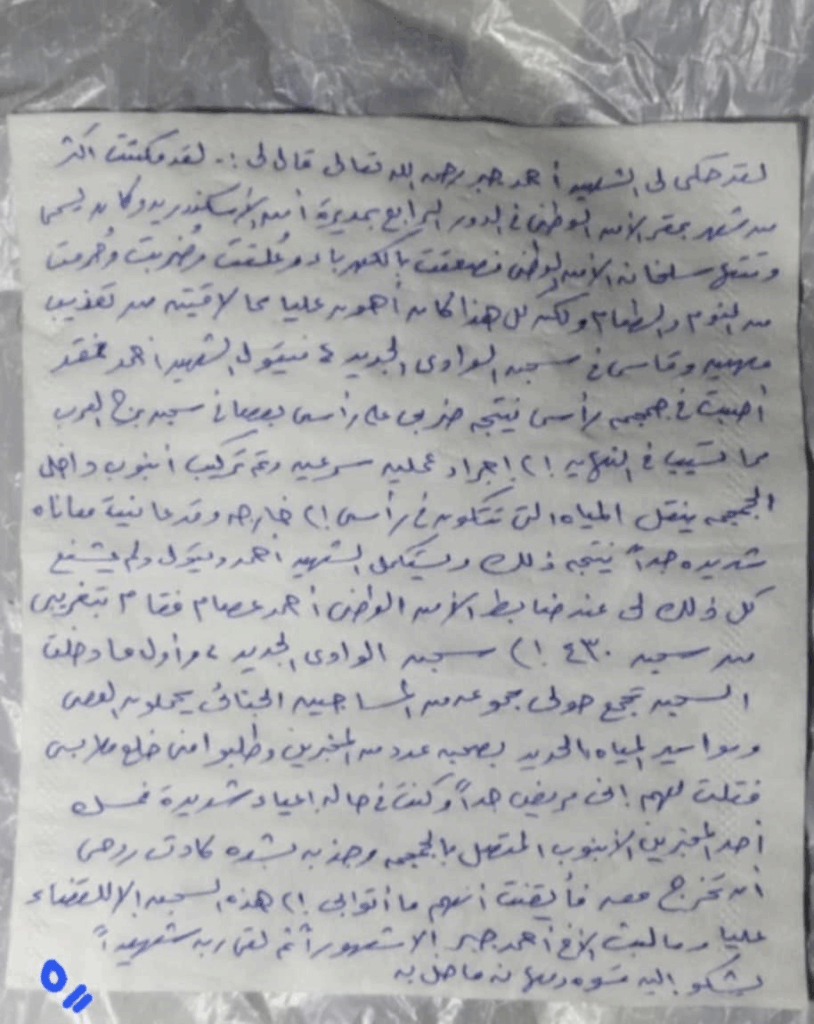 لقد حكى لى الشهيد أحمد جبر رحمه الله تعالى قال لى :- لقد مكثت اكثر
من شهر بمقر الأمن الوطنى فى الدور الرابع بمديرية أمن الأسكندرية وكان يسمى
سلخانة الأمن الوطنى فصعقت بالكهرباء وعُلقت وضُربت وحُرمت
من النوم والطعام ولكن كل هذا كان أهون عليا مما لاقيته من تعذيب
مهين وقاسى فى سجن الوادى الجديد فيقول الشهيد أحمد فقد
أصبت فى جمجمه رأسى نتيجه ضربى على رأسى بعصا فى سجن برج العرب
مما تسبب فى النهايه إلى إجراء عمليه سريعه وتم تركيب أنبوب داخل
الجمجمه ينقل المياه التى تتكون فى رأسى إلى خارجه وقد عانيت معاناه
شديده جداً نتيجه ذلك ويستكمل الشهيد أحمد ويقول ولم يشفع
كل ذلك لى عند ضابط الأمن الوطنى أحمد عصام فقام بتغريبى
من سجن ٤٣٠ إلى سجن الوادى الجديد ، وأول ما دخلت
السجن تجمع حولى مجموعه من المساجين الجنائى يحملون العصى
ومواسير المياه الحديد بصحبه عدد من المخبرين وطلبوا منى خلع ملابسى
فقلت لهم إنى مريض جداً وكنت فى حاله إعياء شديدة فمسك
أحد المخبرين الأنبوب المتصل بالجمجمه وجذبه بشده كادت روحى
أن تخرج معه فأيقنت أنهم ما أتوا بى إلى هذه السجن إلا للقضاء
عليا وما لبث الأخ أحمد جبر إلا شهوراً ثم لقى ربه شهيداً
يشكو إليه ما حل به